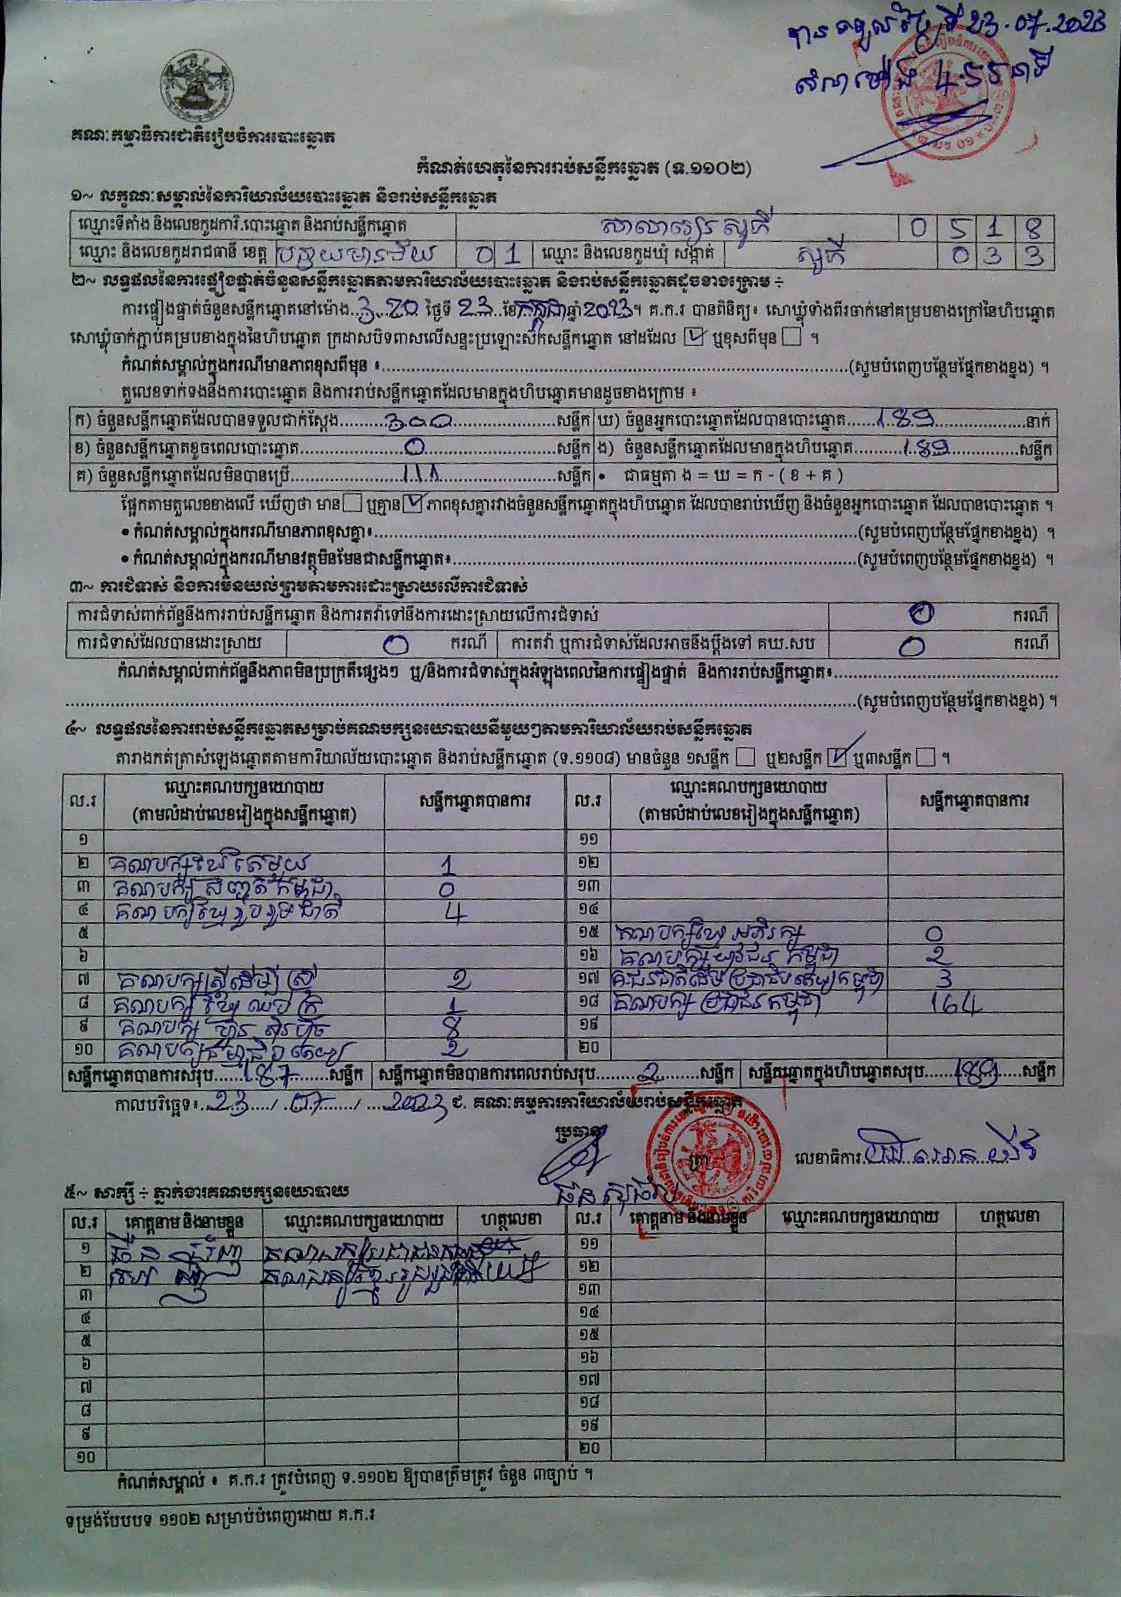 បានទទួលថ្ងៃទី 23.07.2023
វេលាម៉ោង 4:55 នាទី
គណៈកម្មាធិការជាតិរៀបចំការបោះឆ្នោត
កំណត់ហេតុនៃការរាប់សន្លឹកឆ្នោត (ទ.១១០២)
១~ លក្ខណៈសម្គាល់នៃការិយាល័យបោះឆ្នោត និងរាប់សន្លឹកឆ្នោត
ឈ្មោះទីតាំង និងលេខកូដការិ.បោះឆ្នោត និងរាប់សន្លឹកឆ្នោត សាលារៀន សូភី 0 5 1 8
ឈ្មោះ និងលេខកូដរាជធានី ខេត្ត បន្ទាយមានជ័យ 0 1 ឈ្មោះ និងលេខកូដឃុំ សង្កាត់ សូភី 0 3 3
២~ លទ្ធផលនៃការផ្ទៀងផ្ទាត់ចំនួនសន្លឹកឆ្នោតតាមការិយាល័យបោះឆ្នោត និងរាប់សន្លឹកឆ្នោតដូចខាងក្រោម ÷
ការផ្ទៀងផ្ទាត់ចំនួនសន្លឹកឆ្នោតនៅម៉ោង..3..20 ថ្ងៃទី 23..ខែកក្កដាឆ្នាំ2023។ គ.ក.រ បានពិនិត្យ៖ សោឃ្លុំទាំងពីរចាក់នៅគម្របខាងក្រៅនៃហិបឆ្នោត
សោឃ្លុំចាក់ភ្ជាប់គម្របខាងក្នុងនៃហិបឆ្នោត ក្រដាសបិទពាសលើសន្ទះប្រឡោះសៀកសន្លឹកឆ្នោត នៅដដែល ☑ ឬខុសពីមុន ☐ ។
កំណត់សម្គាល់ក្នុងករណីមានភាពខុសពីមុន ៖.....(សូមបំពេញបន្ថែមផ្នែកខាងខ្នង) ។
តួលេខទាក់ទងនឹងការបោះឆ្នោត និងការរាប់សន្លឹកឆ្នោតដែលមានក្នុងហិបឆ្នោតមានដូចខាងក្រោម ៖
ក) ចំនួនសន្លឹកឆ្នោតដែលបានទទួលជាក់ស្ដែង.....300.....សន្លឹក ឃ) ចំនួនអ្នកបោះឆ្នោតដែលបានបោះឆ្នោត.....189.....នាក់
ខ) ចំនួនសន្លឹកឆ្នោតខូចពេលបោះឆ្នោត.....0.....សន្លឹក ង) ចំនួនសន្លឹកឆ្នោតដែលមានក្នុងហិបឆ្នោត.....189.....សន្លឹក
គ) ចំនួនសន្លឹកឆ្នោតដែលមិនបានប្រើ.....111.....សន្លឹក • ជាធម្មតា ង = ឃ = ក - ( ខ + គ )
ផ្អែកតាមតួលេខខាងលើ ឃើញថា មាន☐ ឬគ្មាន☑ ភាពខុសគ្នារវាងចំនួនសន្លឹកឆ្នោតក្នុងហិបឆ្នោត ដែលបានរាប់ឃើញ និងចំនួនអ្នកបោះឆ្នោត ដែលបានបោះឆ្នោត ។
• កំណត់សម្គាល់ក្នុងករណីមានភាពខុសគ្នា៖.....(សូមបំពេញបន្ថែមផ្នែកខាងខ្នង) ។
• កំណត់សម្គាល់ក្នុងករណីមានវត្ថុមិនមែនជាសន្លឹកឆ្នោត៖.....(សូមបំពេញបន្ថែមផ្នែកខាងខ្នង) ។
៣~ ការជំទាស់ និងការមិនយល់ព្រមតាមការដោះស្រាយលើការជំទាស់
ការជំទាស់ពាក់ព័ន្ធនឹងការរាប់សន្លឹកឆ្នោត និងការតវ៉ាទៅនឹងការដោះស្រាយលើការជំទាស់ 0 ករណី
ការជំទាស់ដែលបានដោះស្រាយ 0 ករណី ការតវ៉ា ឬការជំទាស់ដែលអាចនឹងប្ដឹងទៅ គឃ.សប 0 ករណី
កំណត់សម្គាល់ពាក់ព័ន្ធនឹងភាពមិនប្រក្រតីផ្សេងៗ ឬ/និងការជំទាស់ក្នុងអំឡុងពេលនៃការផ្ទៀងផ្ទាត់ និងការរាប់សន្លឹកឆ្នោត៖.....
.....(សូមបំពេញបន្ថែមផ្នែកខាងខ្នង) ។
៤~ លទ្ធផលនៃការរាប់សន្លឹកឆ្នោតសម្រាប់គណបក្សនយោបាយនីមួយៗតាមការិយាល័យរាប់សន្លឹកឆ្នោត
តារាងកត់ត្រាសំឡេងឆ្នោតតាមការិយាល័យបោះឆ្នោត និងរាប់សន្លឹកឆ្នោត (ទ.១១០៨) មានចំនួន ១សន្លឹក ☐ ឬ២សន្លឹក ☑ ឬ៣សន្លឹក ☐ ។
ល.រ ឈ្មោះគណបក្សនយោបាយ (តាមលំដាប់លេខរៀងក្នុងសន្លឹកឆ្នោត) សន្លឹកឆ្នោតបានការ ល.រ ឈ្មោះគណបក្សនយោបាយ (តាមលំដាប់លេខរៀងក្នុងសន្លឹកឆ្នោត) សន្លឹកឆ្នោតបានការ
១ ១១
២ គណបក្សខ្មែរតែមួយ 1 ១២
៣ គណបក្ស សញ្ជាតិកម្ពុជា 0 ១៣
៤ គណបក្សខ្មែររួបរួមជាតិ 4 ១៤
៥ ១៥ គណបក្សខ្មែរអភិរក្ស 0
៦ ១៦ គណបក្សយុវជនកម្ពុជា 2
៧ គណបក្សស្រ្តីដើម្បីស្ត្រី 2 ១៧ គ.ជនជាតិដើមប្រជាធិបតេយ្យកម្ពុជា 3
៨ គណបក្ស ខ្មែរឈប់ក្រ 1 ១៨ គណបក្ស ប្រជាជនកម្ពុជា 164
៩ គណបក្ស ហ្វ៊ុនស៊ិនប៉ិច 8 ១៩
១០ គណបក្សធម្មាធិបតេយ្យ 2 ២០
សន្លឹកឆ្នោតបានការសរុប.....187.....សន្លឹក សន្លឹកឆ្នោតមិនបានការពេលរាប់សរុប.....2.....សន្លឹក សន្លឹកឆ្នោតក្នុងហិបឆ្នោតសរុប.....189.....សន្លឹក
កាលបរិច្ឆេទ៖..23../..07../..2023 ជ. គណៈកម្មការការិយាល័យរាប់សន្លឹកឆ្នោត
ប្រធាន
លេខាធិការ
៥~ សាក្សី ÷ ភ្នាក់ងារគណបក្សនយោបាយ
ល.រ គោត្តនាម និងនាមខ្លួន ឈ្មោះគណបក្សនយោបាយ ហត្ថលេខា ល.រ គោត្តនាម និងនាមខ្លួន ឈ្មោះគណបក្សនយោបាយ ហត្ថលេខា
១ គណបក្សប្រជាជនកម្ពុជា ១១
២ គណបក្សខ្មែររួបរួមជាតិ ១២
៣ ១៣
៤ ១៤
៥ ១៥
៦ ១៦
៧ ១៧
៨ ១៨
៩ ១៩
១០ ២០
កំណត់សម្គាល់ ៖ គ.ក.រ ត្រូវបំពេញ ទ.១១០២ ឱ្យបានត្រឹមត្រូវ ចំនួន ៣ច្បាប់ ។
ទម្រង់បែបបទ ១១០២ សម្រាប់បំពេញដោយ គ.ក.រ